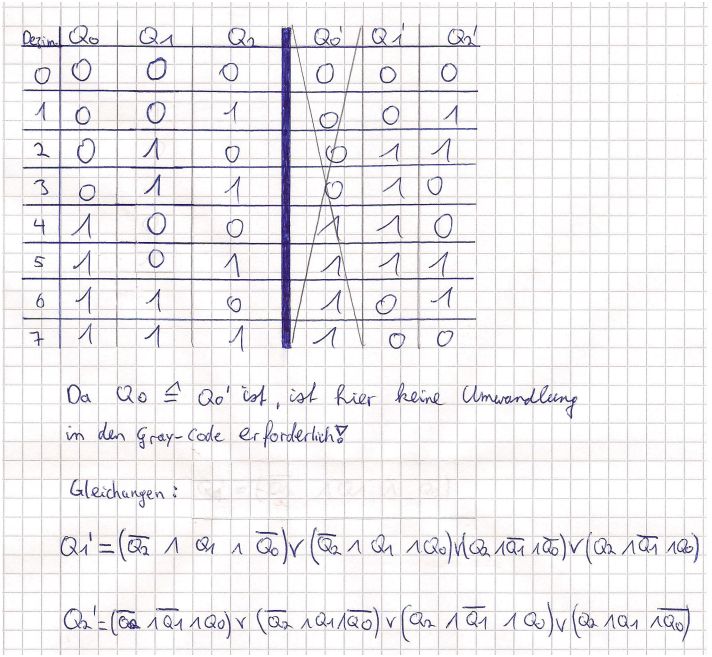 Dezimal Q0 Q1 Q2 Q0' Q1' Q2'
0 0 0 0 0 0 0
1 0 0 1 0 0 1
2 0 1 0 0 1 1
3 0 1 1 0 1 0
4 1 0 0 1 1 0
5 1 0 1 1 1 1
6 1 1 0 1 0 1
7 1 1 1 1 0 0
Da Q0 ≙ Q0' ist, ist hier keine Umwandlung
in den Gray-code erforderlich!
Gleichungen:
Q1' = (Q̅2 ∧ Q1 ∧ Q̅0) ∨ (Q̅2 ∧ Q1 ∧ Q0) ∨ (Q2 ∧ Q̅1 ∧ Q̅0) ∨ (Q2 ∧ Q̅1 ∧ Q0)
Q2' = (Q̅2 ∧ Q̅1 ∧ Q0) ∨ (Q̅2 ∧ Q1 ∧ Q̅0) ∨ (Q2 ∧ Q̅1 ∧ Q0) ∨ (Q2 ∧ Q1 ∧ Q̅0)